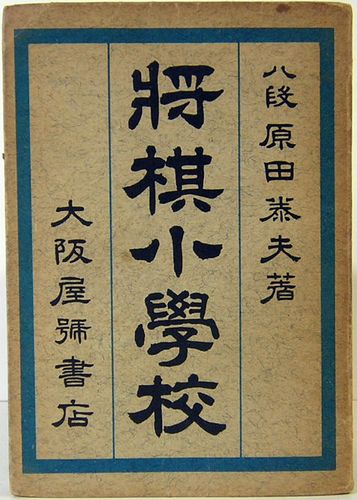 八段 原田泰夫著
將棋小學校
大阪屋號書店